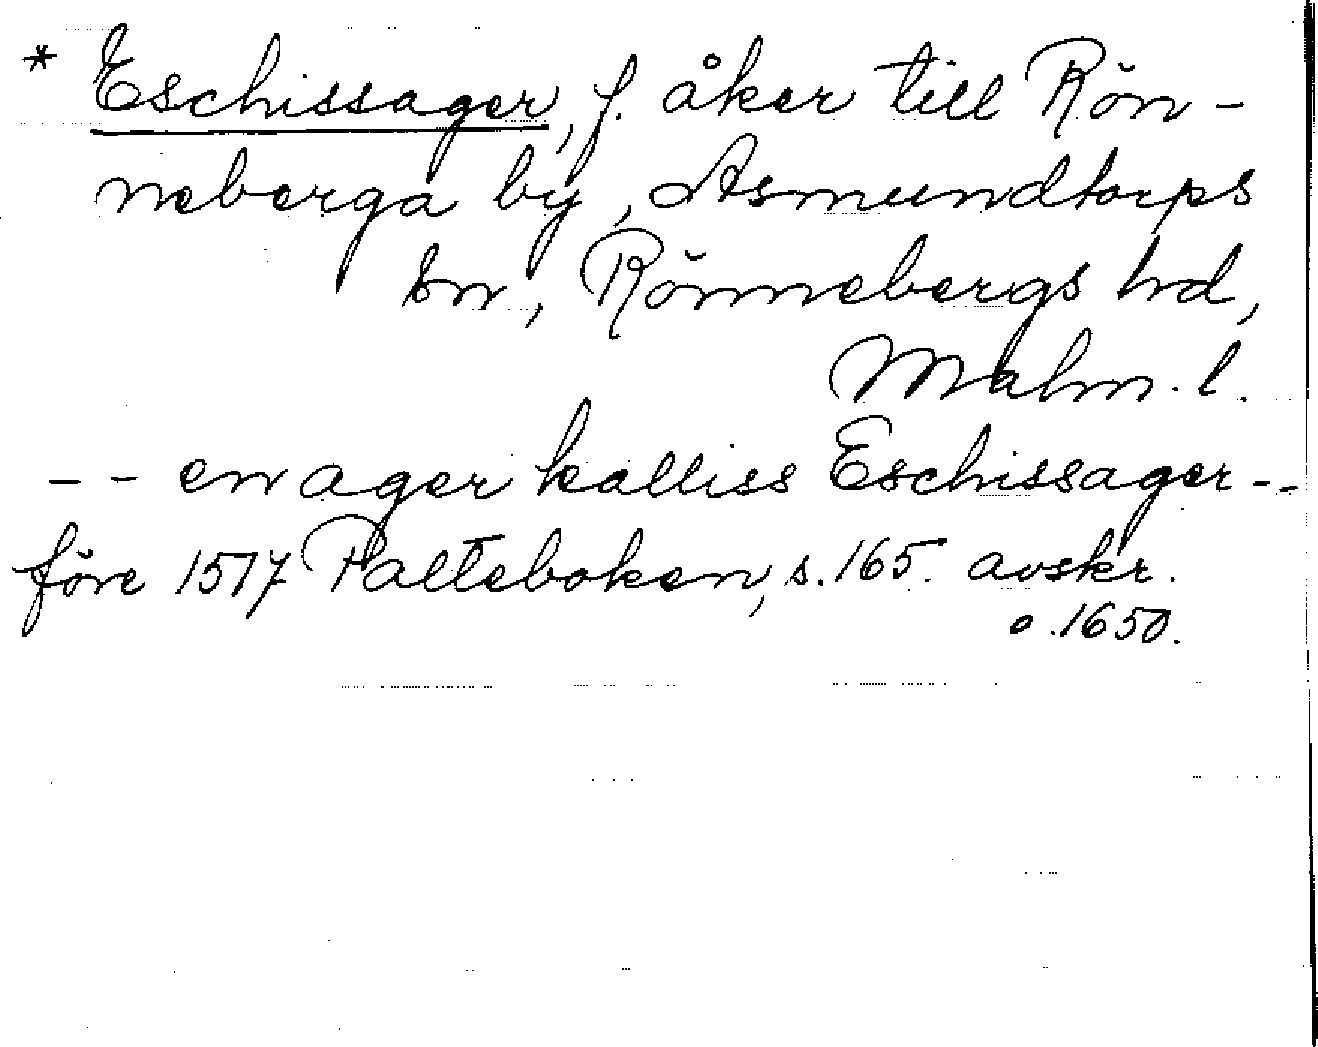 * Eschissager, f. åker till Rön-
neberga by, Asmundtorps
sn, Rönnebergs hd,
Malm. l.
-- en ager kalliss Eschissager --
före 1517 Palteboken, s. 165. avskr.
o. 1650.